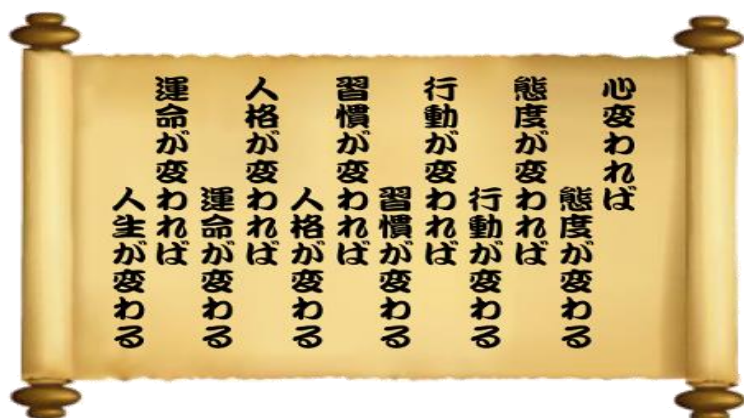 心変われば
態度が変わる
態度が変われば
行動が変わる
行動が変われば
習慣が変わる
習慣が変われば
人格が変わる
人格が変われば
運命が変わる
運命が変われば
人生が変わる